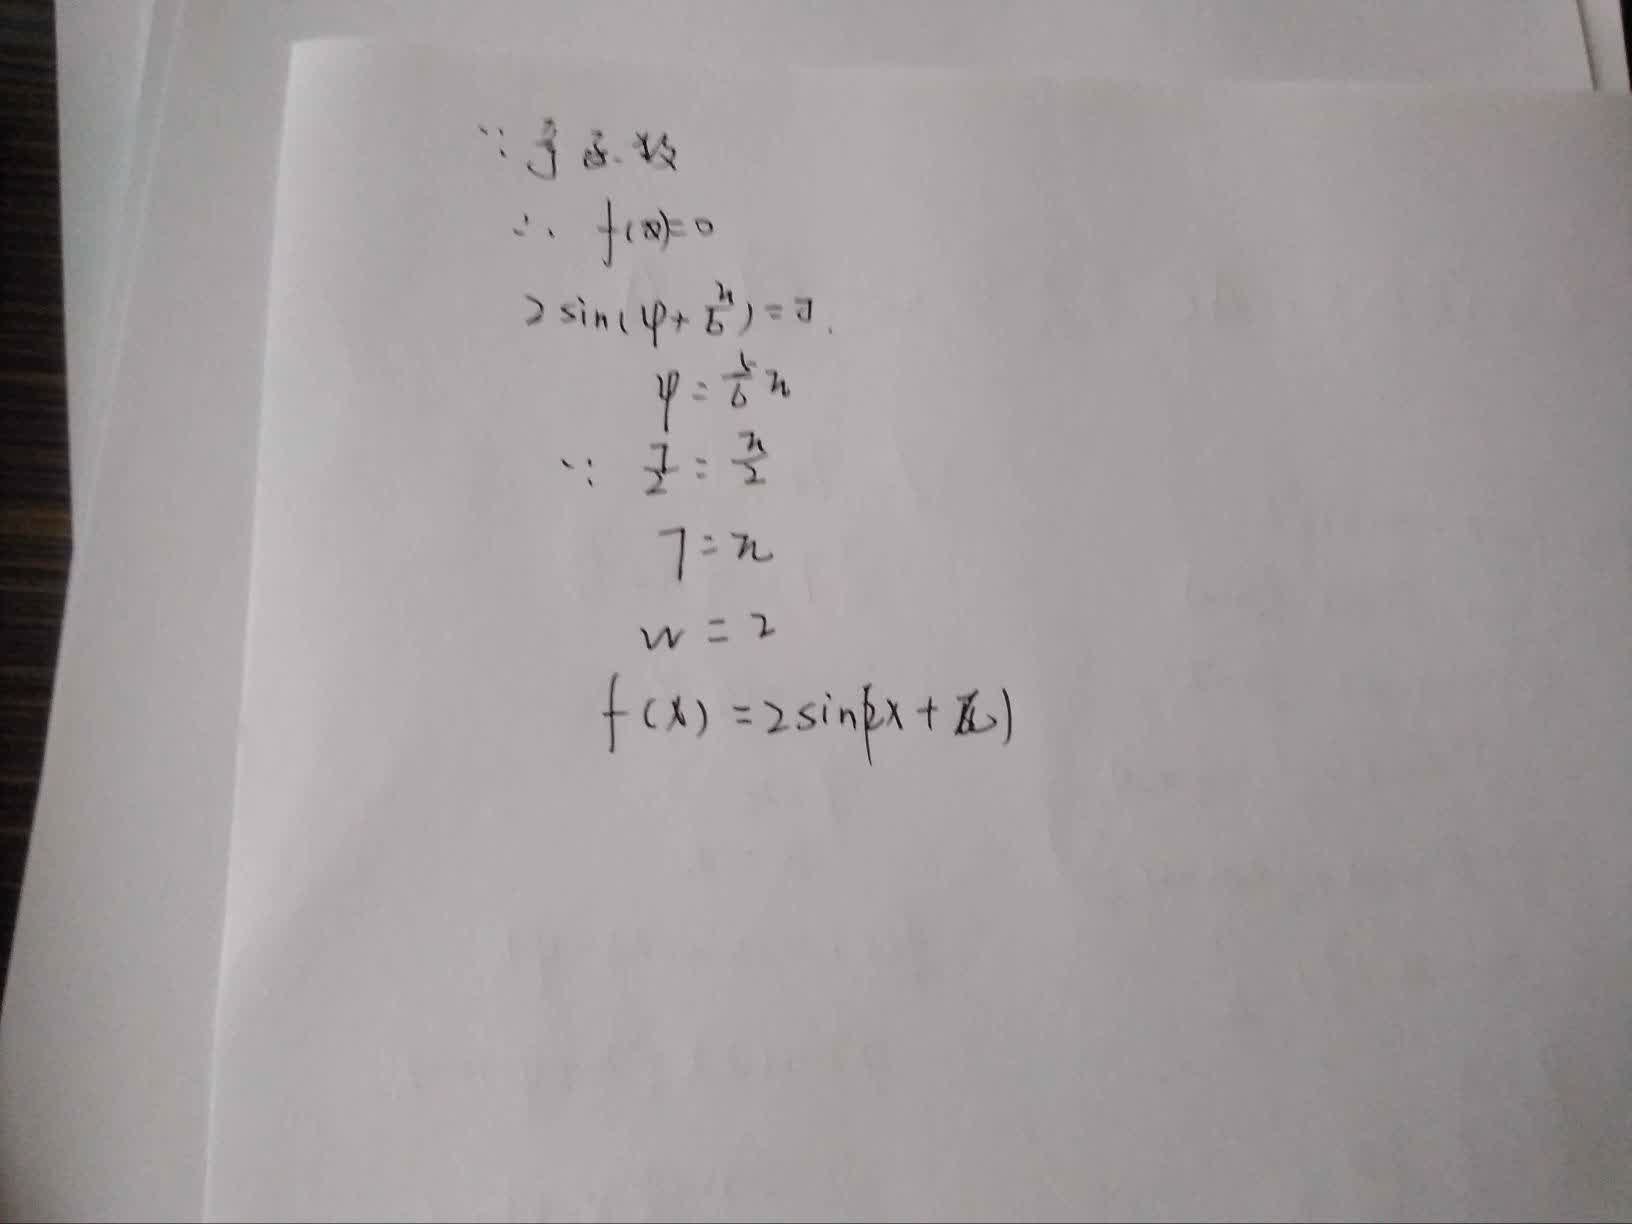 ∵ 奇函数
∴ f(0)=0
2sin(φ+π/6)=0.
φ=5/6π
∵ T/2=π/2
T=π
w=2
f(x)=2sin(2x+π)